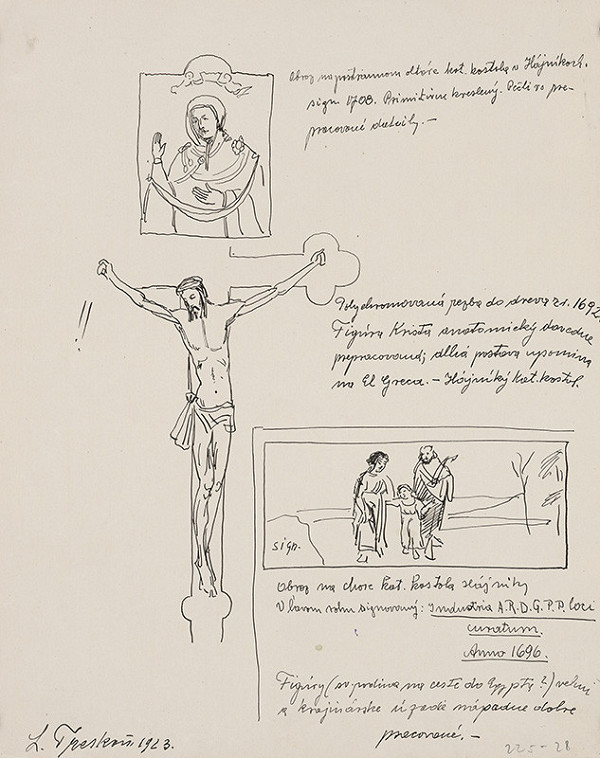 Obraz na postrannom oltáre kat. kostola v Hájnikoch.
sign 1708. Primitívne kreslený. Ošti so pre-
pracované detaily. —
Polychromovaná rezba do dreva z r. 1692.
Figúra Krista anatomický dovedne
prepracovaná; dlhá postava upomína
na El Greca. — Hájniký kat. kostol.
sign.
Obraz na chore kat. kostola Hájniky
V ľavom rohu signovaný: Industria A.R.D.G.P.P. loci
curatum.
Anno 1696.
Figúry (sv. rodina na ceste do Egypta ?)
a krajinárske úzadie nápadne dobre
pracované. —
1923.
225-28